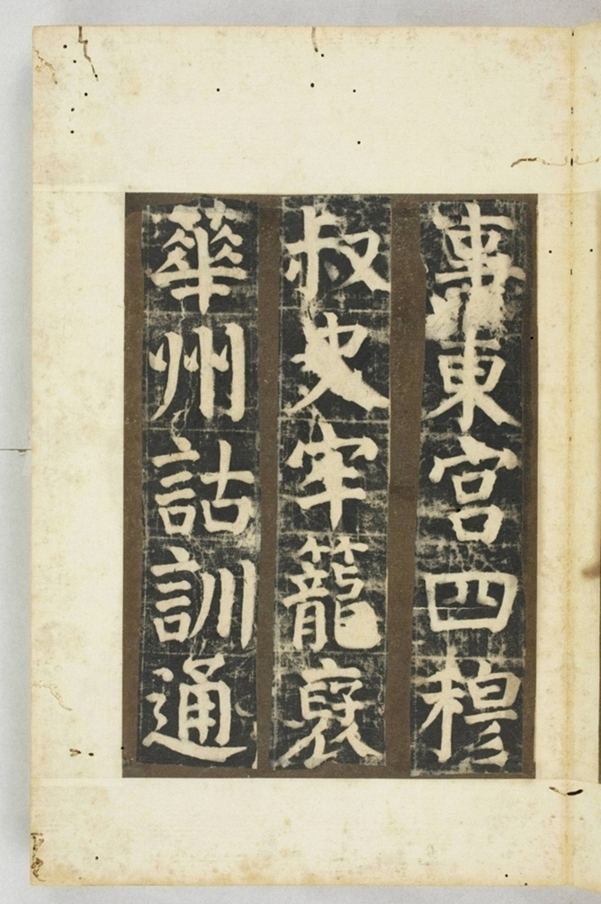 事東宮四穆
叔史牢籠裒
華州詁訓通